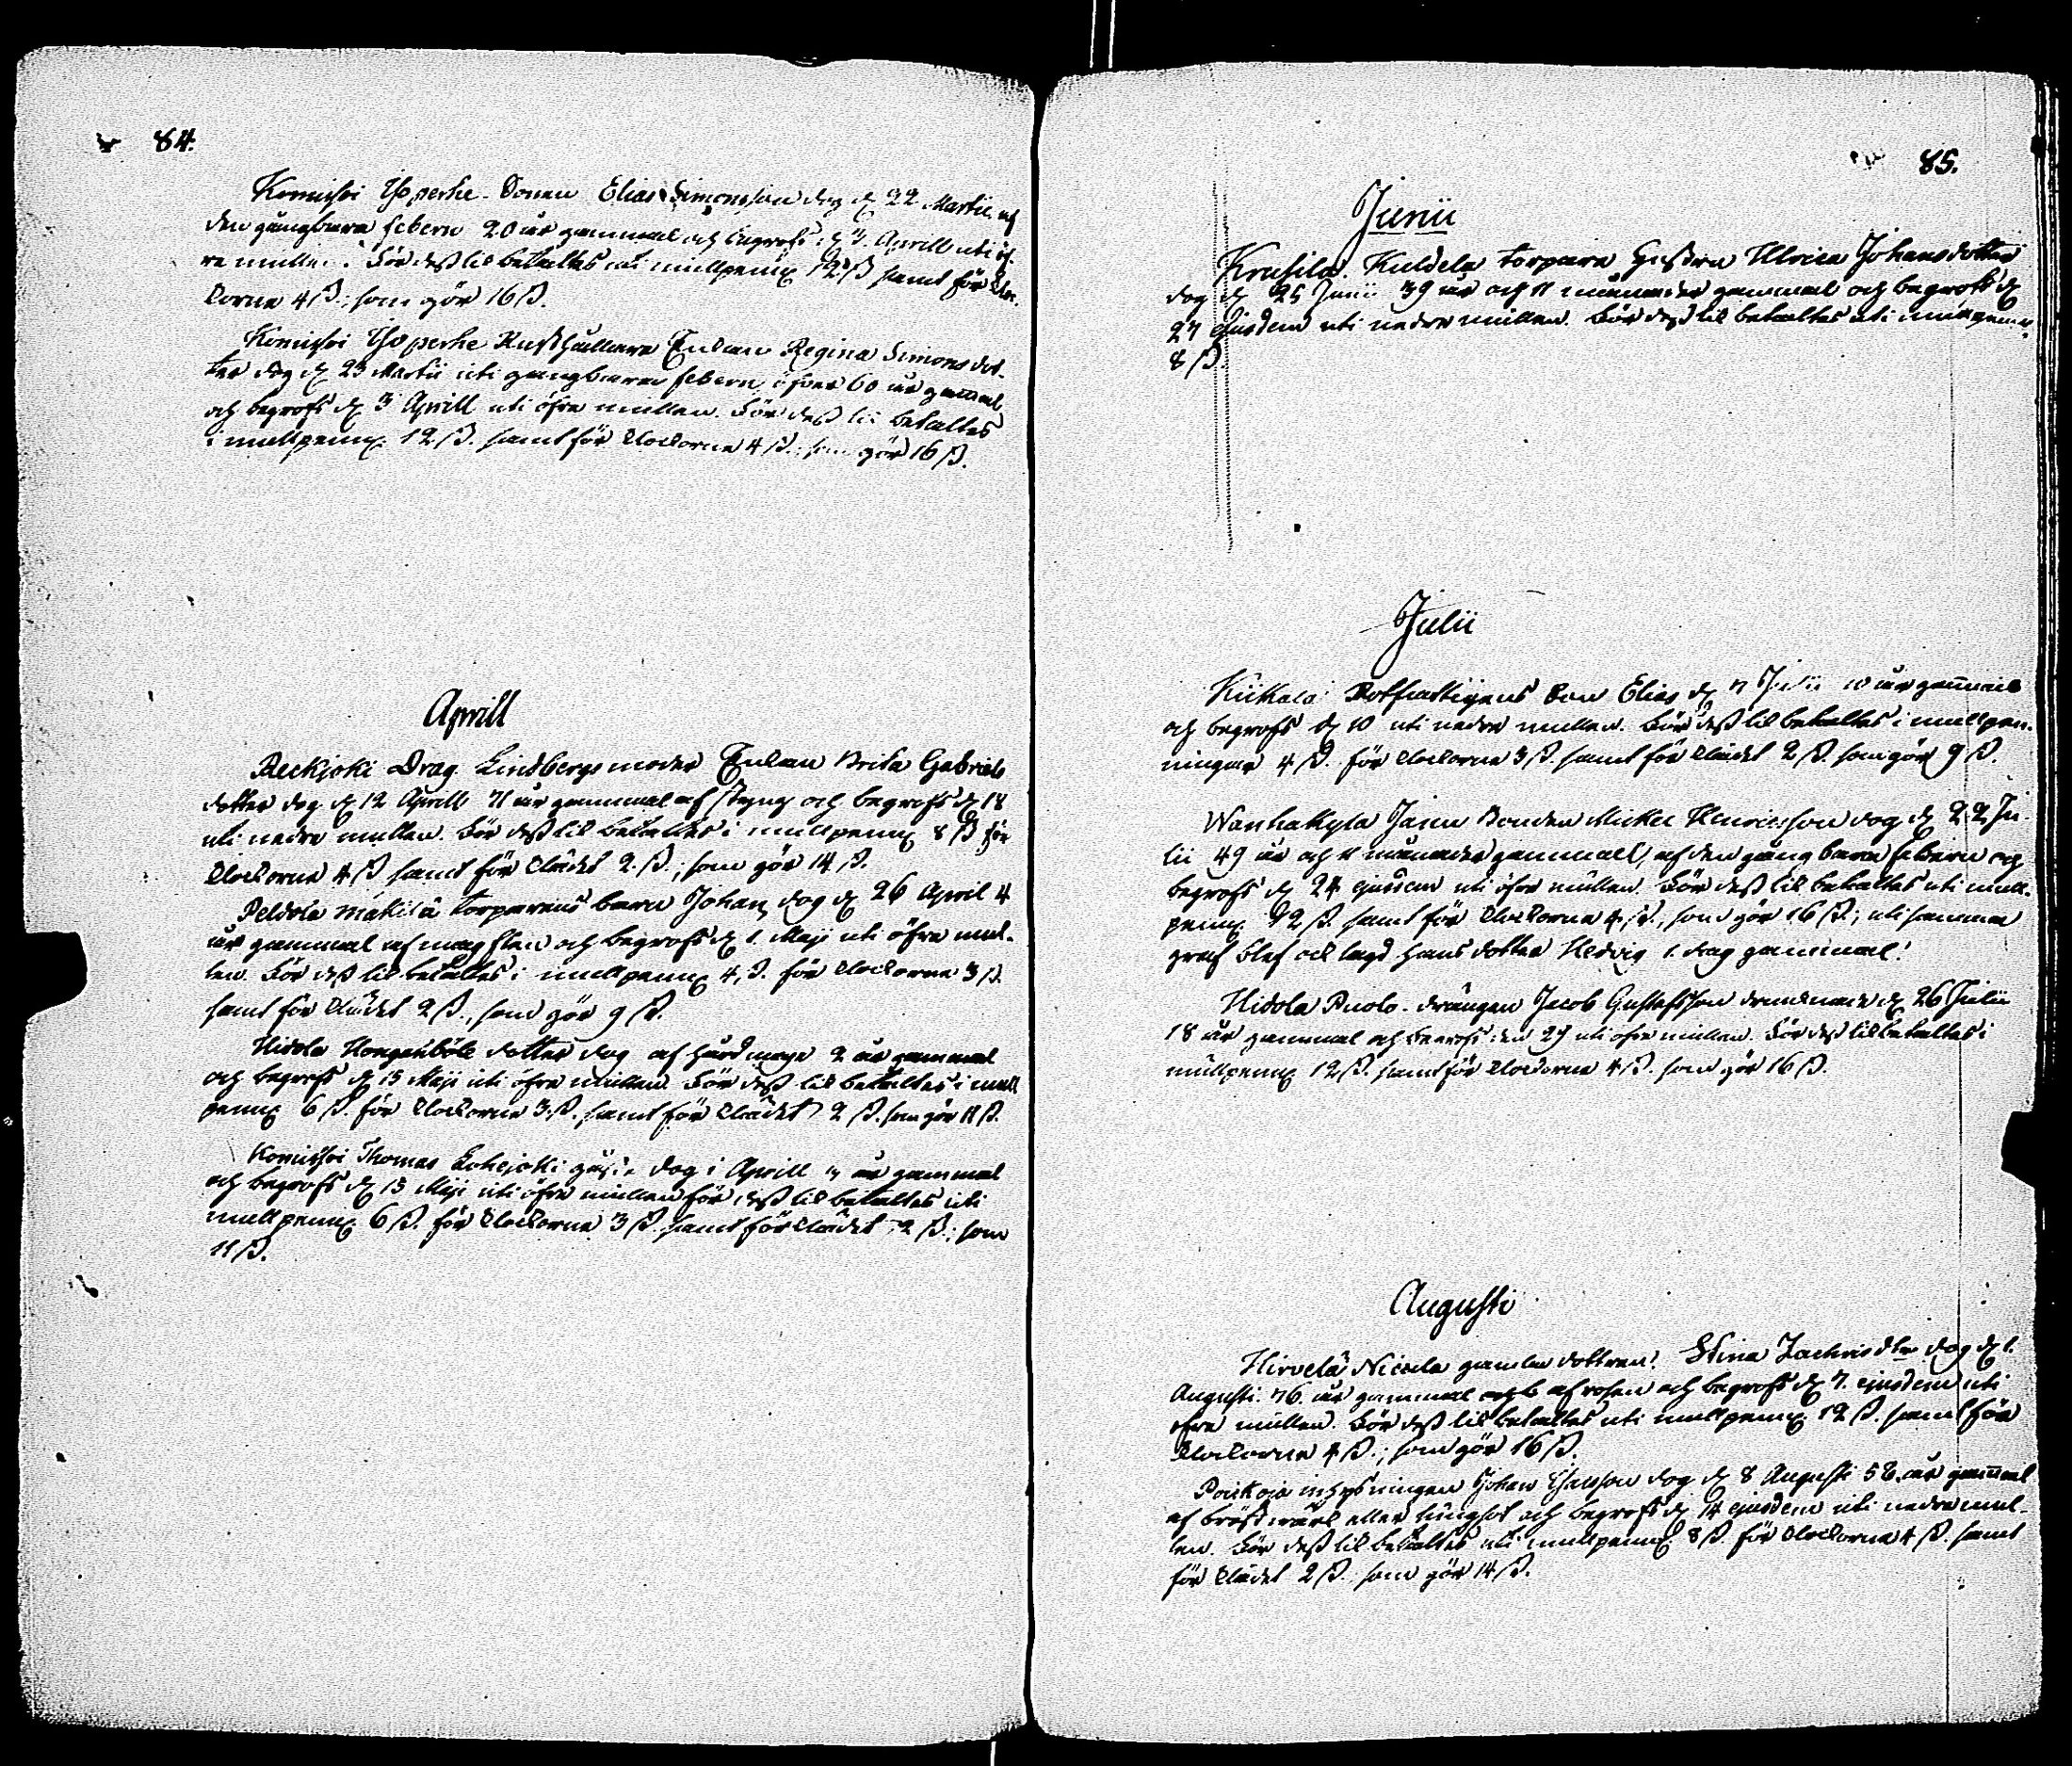 84.
Komisſoi Yſoperhe Sonen Elias Simonsſon dog d. 22 Martii uti
den gångbara febern 20 år gammal och begrofs d. 3. Aprill uti öf-
re mullen. För deß lik betaltes uti mullpenng 12 ß samt för kloc-
korna 4 ß., som gör 16 ß.
Komisſoi Yſoperhe Rusthållare Enckan Regina Simonsdot-
ter dog d. 23 Martii uti gångbaren febern öfver 60 år gam̄al
och begrofs d. 3 Aprill uti öfre mullen. För deß lik betaltes
i mullpenng. 12 ß. samt för klockorna 4 ß.; som gör 16 ß.
Aprill
Reckjoki Drag. Lindbergs moder Enckan Brita Gabriels
dotter dog d. 12 Aprill 71 år gammal af styng och begrofs d. 18
uti nedre mullen. För deß lik betaltes i mullpenng 8 ß för
klockorna 4 ß samt för klädet 2 ß.; som gör 14 ß.
Peldola mäkilä torparens barn Johan dog d. 26 April 4
år gammal af magsten och begrofs d. 1. Maji uti öfre mul-
len. För deß lik betaltes i mullpenng 4 ß. för klockorna 3 ß.
samt för klädet 2 ß., som gör 9 ß.
Hidola Hongenböle dotter dog af hård mage 2 år gammal
och begrofs d. 15 Maji uti öfre mullen. För deß lik betaltes i mull
penng 6 ß. för klockorna 3 ß. samt för klädet 2 ß. som gör 11 ß.
Komisſoi Thomas dog i Aprill år gammal
och begrofs d. 15 Maji uti öfre mullen för deß lik betaltes uti
mullpenng 6 ß. för klockorna 3 ß. samt för klädet 2 ß.; som
11 ß.
85.
Junii
Krusila. Kuldela torpare hustru Ulrica Johansdotter
dog d. 25 Junii 39 år och 11 månader gammal och begrofs d.
27 ejusdem uti nedre mullen. För deß lik betaltes uti mullpenng
8 ß.
Julii
Kiikala Rotfattigens Son Elias d. 7 Julii 10 år gam̄al
och begrofs d. 10 uti nedre mullen. För deß lik betaltes i mullpen-
ningar 4 ß. för klockorna 3 ß. samt för klädet 2 ß. som gör 9 ß.
Wanhakyla Jaun Bonden Mickel Henricsson dog d. 22 Ju-
lii 49 år och 11 månader gammal, af den gångbara febern och
begrofs d. 24 ejusdem uti öfre mullen. För deß lik betaltes uti mull-
penng. 12 ß. samt för klockorna 4 ß., som gör 16 ß.; uti samma
graf blef ock lagd hans dotter Hedvig 1. dag gammal.
Hidola Puolo-drängen Jacob Gustafsson drunknade d. 26 Julii
18 år gammal och begrofs den 29 uti öfre mullen. För deß lik betaltes i
mullpenng 12 ß. samt för klockorna 4 ß. som gör 16 ß.
Augusti
Hirvelä Nicola gamla dottren Stina Zachrisdtr dog d. 1.
Augusti. 76. år gammal af rosen och begrofs d. 7. ejusdem uti
öfre mullen. För deß lik betaltes uti mullpenng 12 ß. samt för
klockorna 4 ß.; som gör 16 ß.
inhysningen Johan dog d. 8 Augusti 58. år gam̄al
af bröstvärk eller lungsot och begrofs d. 14 ejusdem uti nedre mul-
len. För deß lik betaltes uti mullpenng 8 ß. för klockorna 4 ß. samt
för klädet 2 ß. som gör 14 ß.